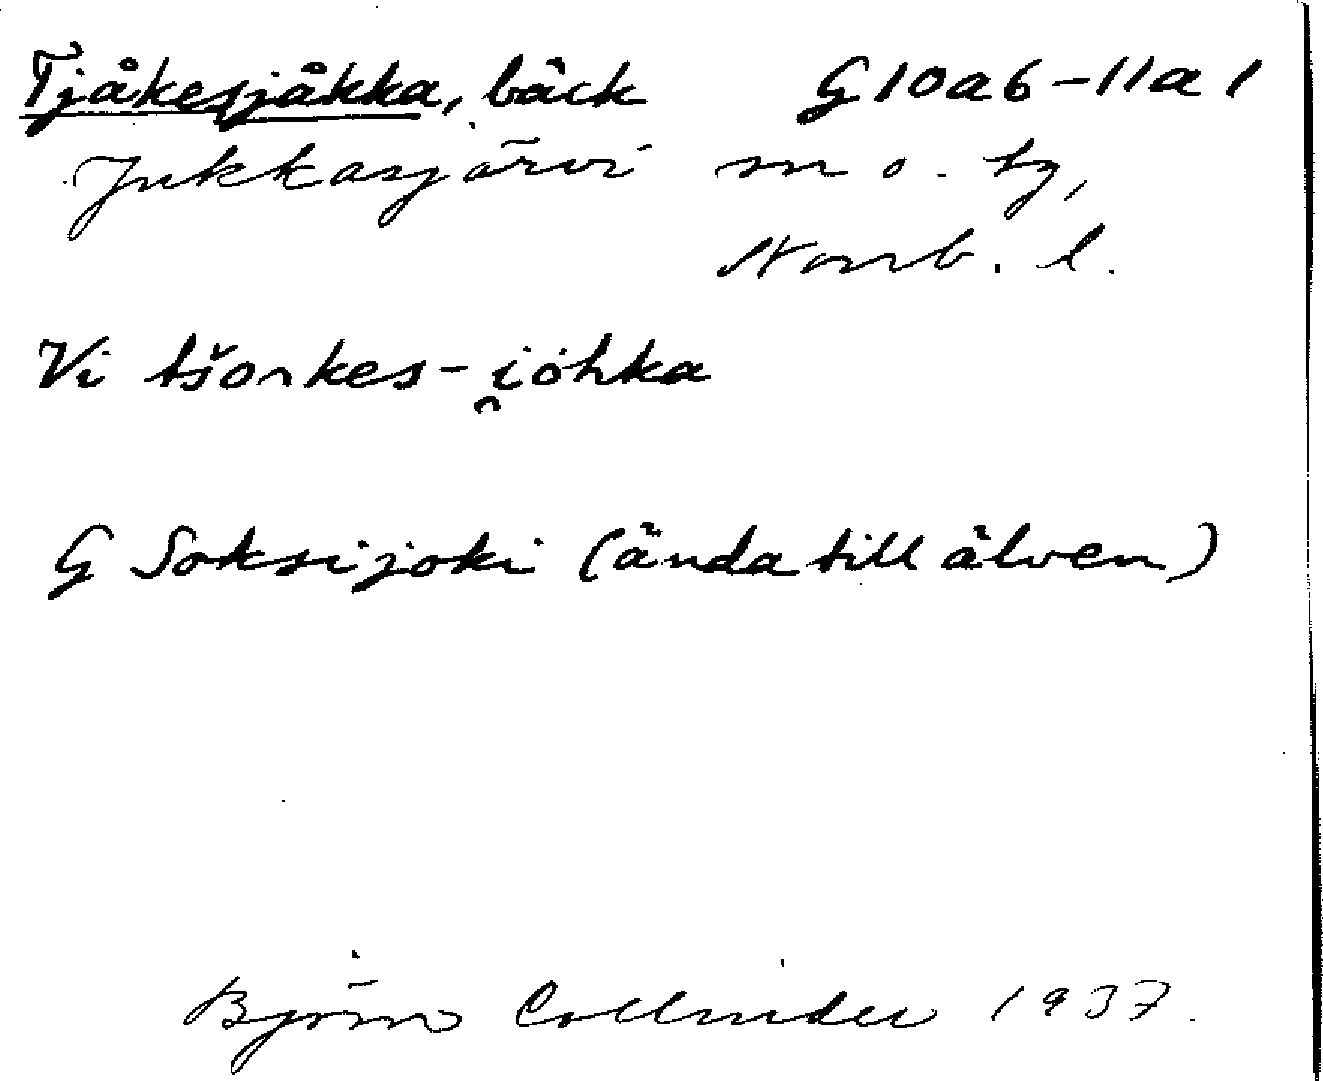 Tjåkesjåkka, bäck G10a6-11a1
Jukkasjärvi sn o. tg,
Norrb. l.
Vi tšorkes-i̯ohka
G Soksijoki (ända till älven)
Björn Collinder 1937.